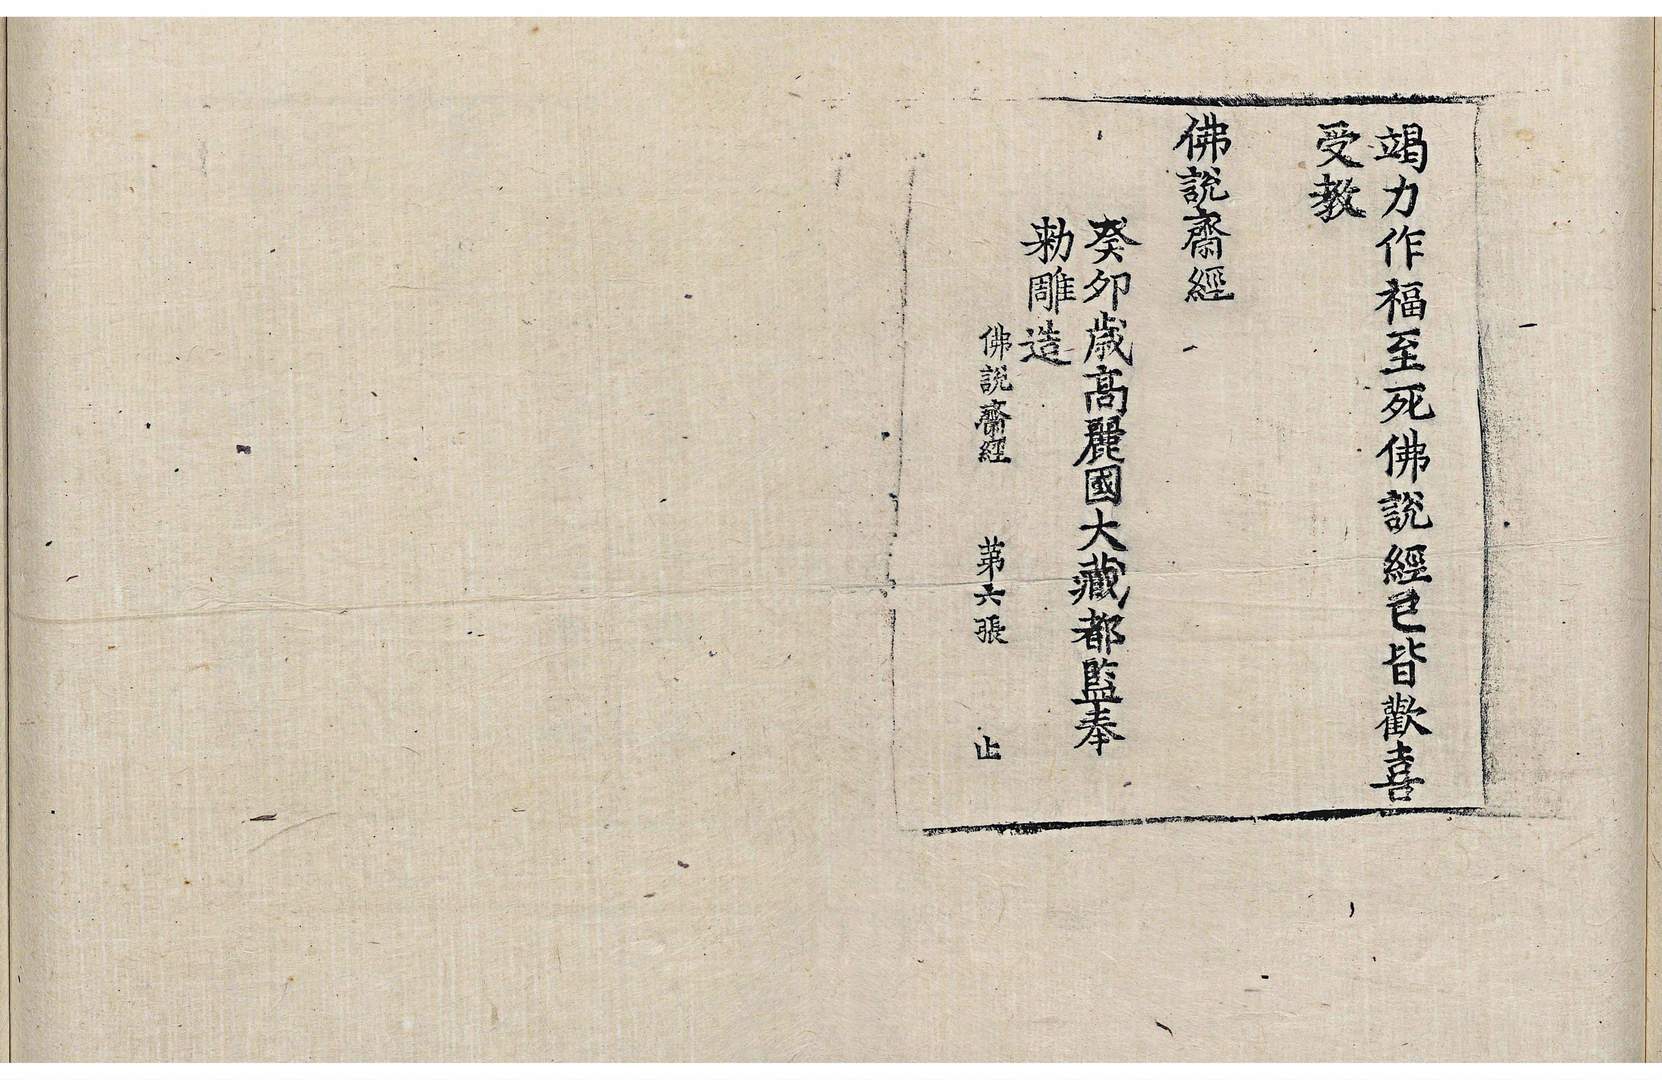 竭力作福至死佛說經已皆歡喜
受教
佛說齋經
癸卯歲高麗國大藏都監奉
勑雕造
佛說齋經 苐六張 止